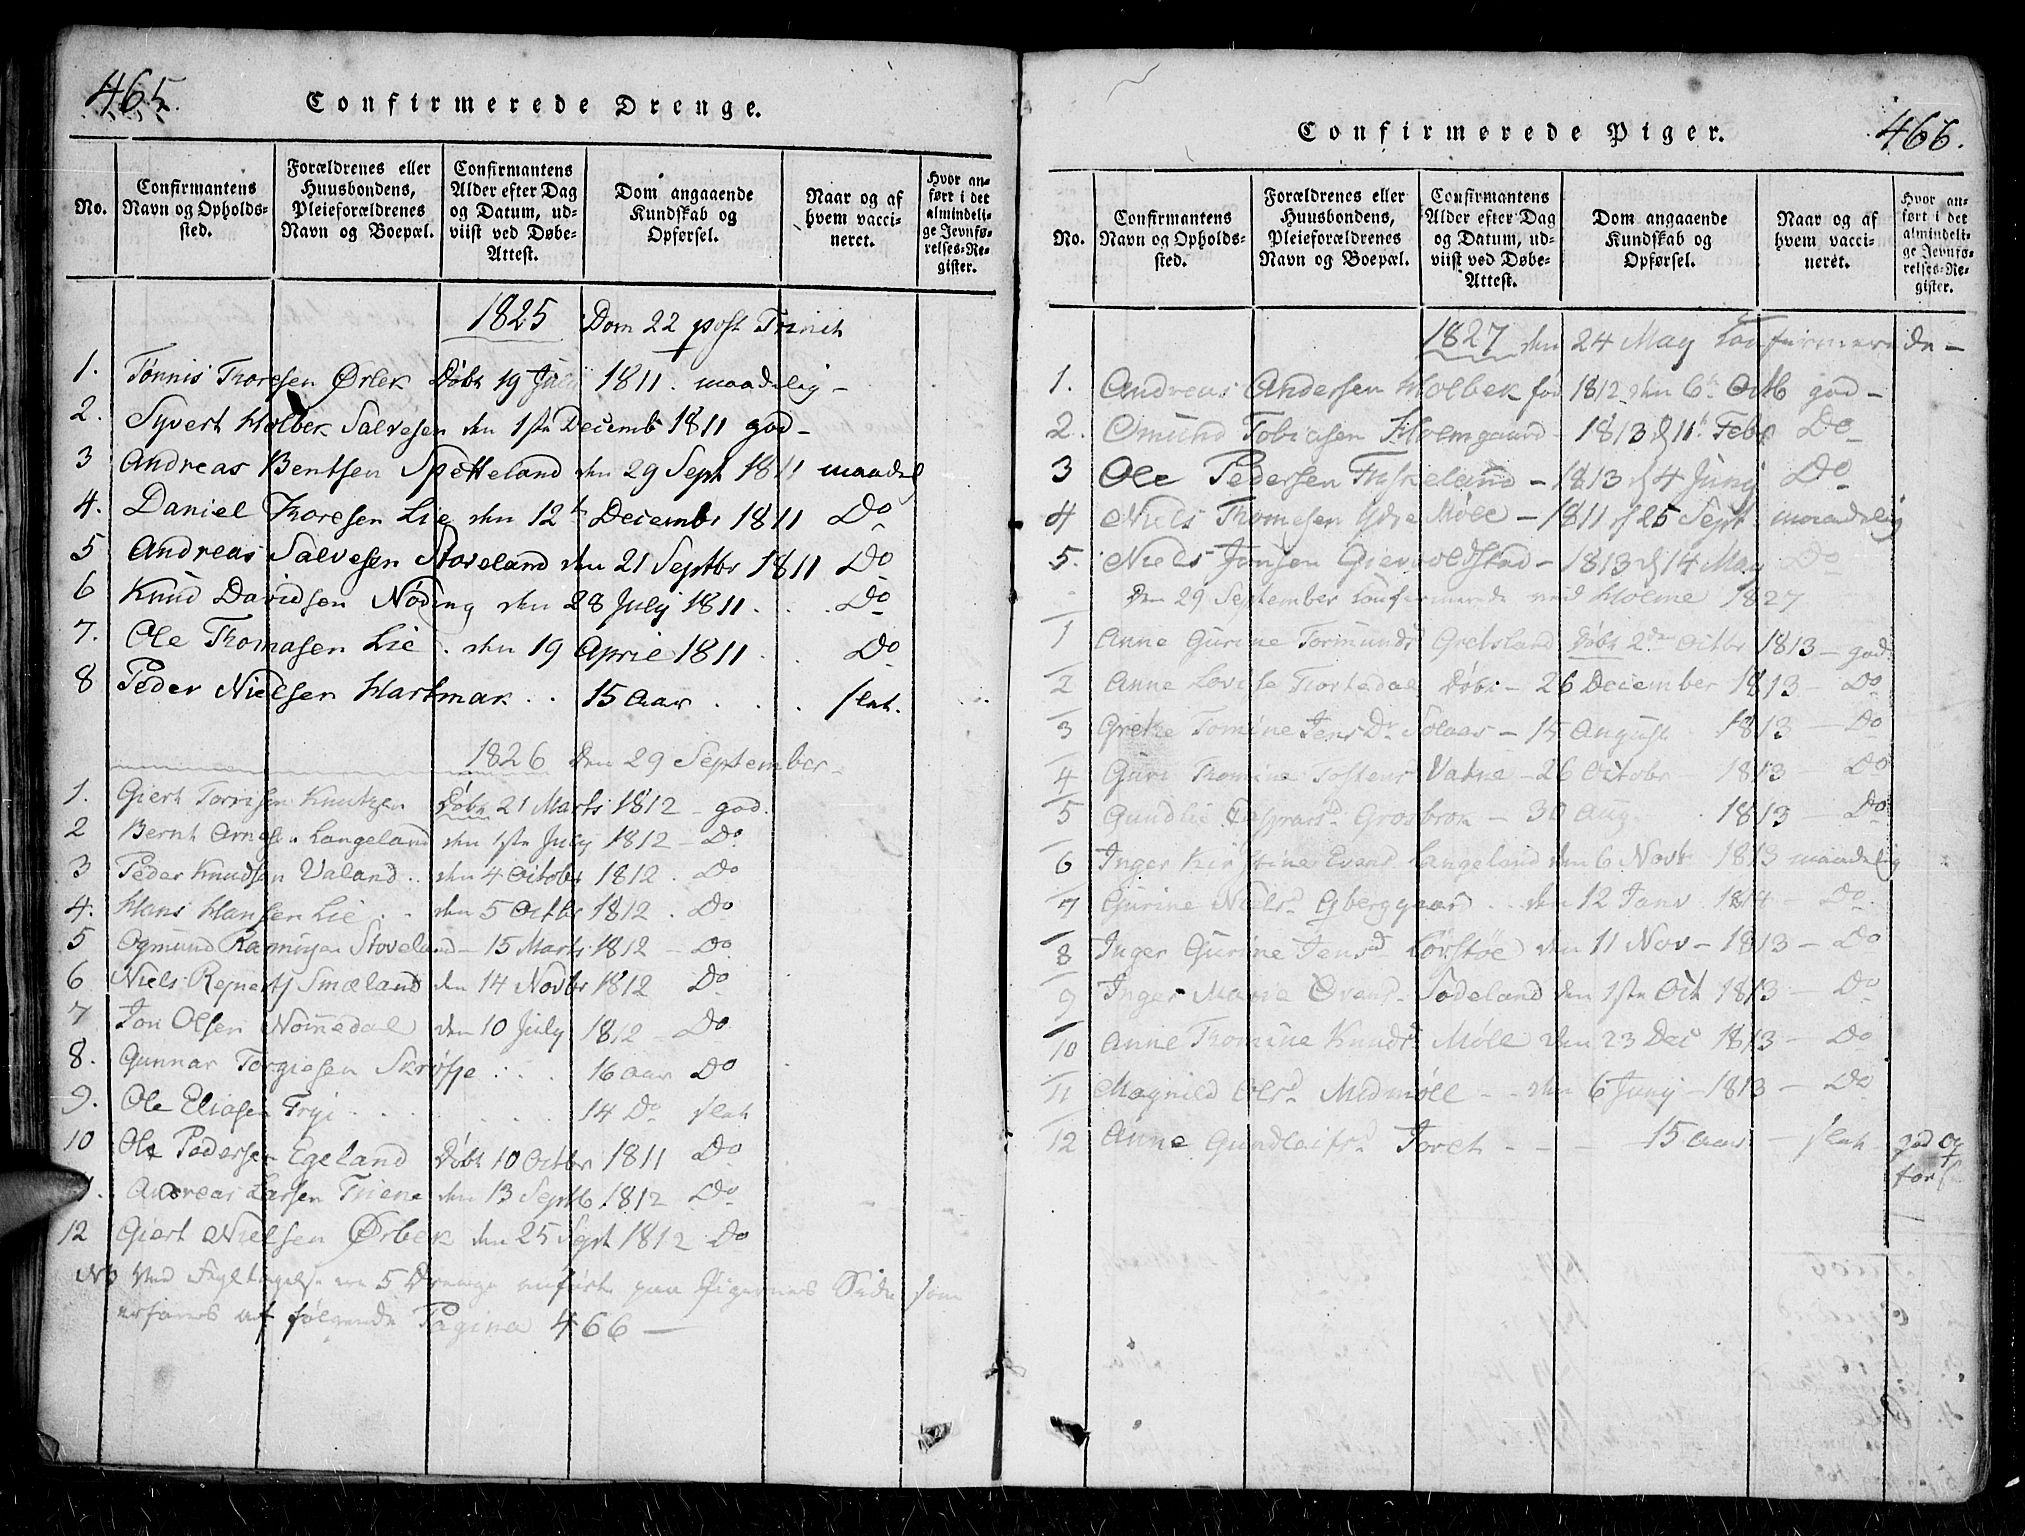 465.
Confirmerede Drenge.
No.
Confirmantens Navn og Opholds-sted.
Forældrenes eller Huusbondens, Pleieforældrenes Navn og Boepæl.
Confirmantens Alder efter Dag og Datum, ud-viist ved Døbe-Attest.
Dom angaaende Kundskab og Opførsel.
Naar og af hvem vacci-neret.
Hvor an-ført i det almindeli-ge Jevnfø-relses-Re-gister.
1825 Dom 22 post Trinit
1. Tønnis Thoresen Ørbek Døbt 19 July 1811. maadelig -
2. Syvert Holbek Salvesen den 1ste Decemb 1811 god -
3 Andreas Bentsen Spetteland den 29 Sept 1811 maadel
4. Daniel Thoresen Lie den 12te Decembr 1811 Do
5 Andreas Salvesen Stoveland den 21 Septbr 1811 Do
6 Knud Davidsen Noding den 28 July 1811 . . Do
7. Ole Thomasen Lie . den 19 April 1811 . . Do
8 Peder Nielsen Hartmark . . 15 Aar . . . slet.
1826 den 29 September -
1. Giert Torrisen Knutzen Døbt 21 Marts 1812 - god.
2 Bernt Arnesen Langeland den 1ste July 1812 - Do
3 Peder Knudsen Valand . . den 4 Octobr 1812 . Do
4. Hans Hansen Lie . . den 5 Octbr 1812 . Do
5 Ogmund Stoveland - 15 Marts 1812 - Do
6 Niels Smæland den 14 Novbr 1812 Do
7 Jon Olsen Nomedal den 10 July 1812 - Do
8. Gunnar Torgiesen Skrøfje . . . 16 aar Do
9. Ole Eliasen . . . 14 Do slet
10 Ole Pedersen Egeland Døbt 10 Octbr 1811 Do
Andreas Larsen Triene den 13 Septb 1812 Do
12 Giert Nielsen Ørbek den 25 Sept 1812 Do
NB Ved Fejltagelse ere 5 Drenge anførte paa Pigernes Side som
erfares af følgende Pagina 466 -
466.
Confirmerede Piger.
No.
Confirmantens Navn og Opholds-sted.
Forældrenes eller Huusbondens, Pleieforældrenes Navn og Boepæl.
Confirmantens Alder efter Dag og Datum, ud-viist ved Døbe-Attest.
Dom angaaende Kundskab og Opførsel.
Naar og af hvem vacci-neret.
Hvor an-ført i det almindeli-ge Jevnfø-relses-Re-gister.
1827 den 24 May Confirmerede -
1. Andreas Andersen Holbek fød 1812 den 6te Octb god -
2. Omund Tobiasen Holmgaard - 1813 d 11te Febr Do
3 Ole Pedersen Fuskeland - 1813 d 4 Junj Do
4 Niels Thomesen Ydre Møll - 1811 d 25 Sept maadelig
5. Niels Jonsen Gievoldstad - 1813 d 14 May Do
Den 29 September Confirmerede ved Holme 1827
1 Anne Gurine Tormunds Døbt 2den Octbr 1813 - god.
2 Anne Lovise Døbt - 26 December 1813 - Do
3 Grethe Tomine Jens Dr Solaas - 15 August 1813 - Do
4 Guri Thomine Tostens Vatne - 26 Octobr 1813 - Do
5 Gundlie Grosbrok - 30 Aug. . 1813 - Do
6 Inger Kirstine Evens Langeland den 6 Novb 1813 maadelig
7 Gurine Niels D . . den 12 Janv 1814 - Do
8 Inger Gurine Jensd den 11 Nov - 1813 - Do
9 Inger Marie Sodeland den 1ste Oct 1813 - Do
10 Anne Thomine Knuds Møll den 23 Dec 1813 - Do
11 Magnild Ols D Midmøll - - den 6 Junj - 1813 - Do
12 Anne Gundleifs D - - - 15 aar - slet god og